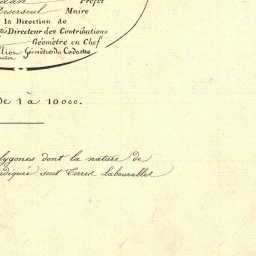 Préfet
Maire
la Direction de
Directeur des Contributions
Géomètre en Chef
Général du Cadastre
de 1 à 10000.
lygones dont la nature de
diquée sont Terres labourables